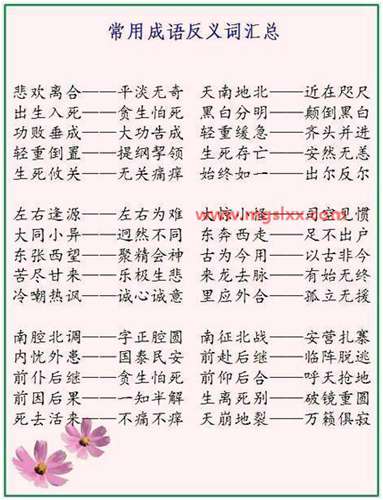 常用成语反义词汇总
悲欢离合——平淡无奇 天南地北——近在咫尺
出生入死——贪生怕死 黑白分明——颠倒黑白
功败垂成——大功告成 轻重缓急——齐头并进
轻重倒置——提纲挈领 生死存亡——安然无恙
生死攸关——无关痛痒 始终如一——出尔反尔
左右逢源——左右为难 大惊小怪——司空见惯
www.mgslxx.com
大同小异——迥然不同 东奔西走——足不出户
东张西望——聚精会神 古为今用——以古非今
苦尽甘来——乐极生悲 来龙去脉——有始无终
冷嘲热讽——诚心诚意 里应外合——孤立无援
南腔北调——字正腔圆 南征北战——安营扎寨
内忧外患——国泰民安 前赴后继——临阵脱逃
前仆后继——贪生怕死 前仰后合——呼天抢地
前因后果——一知半解 生离死别——破镜重圆
死去活来——不痛不痒 天崩地裂——万籁俱寂